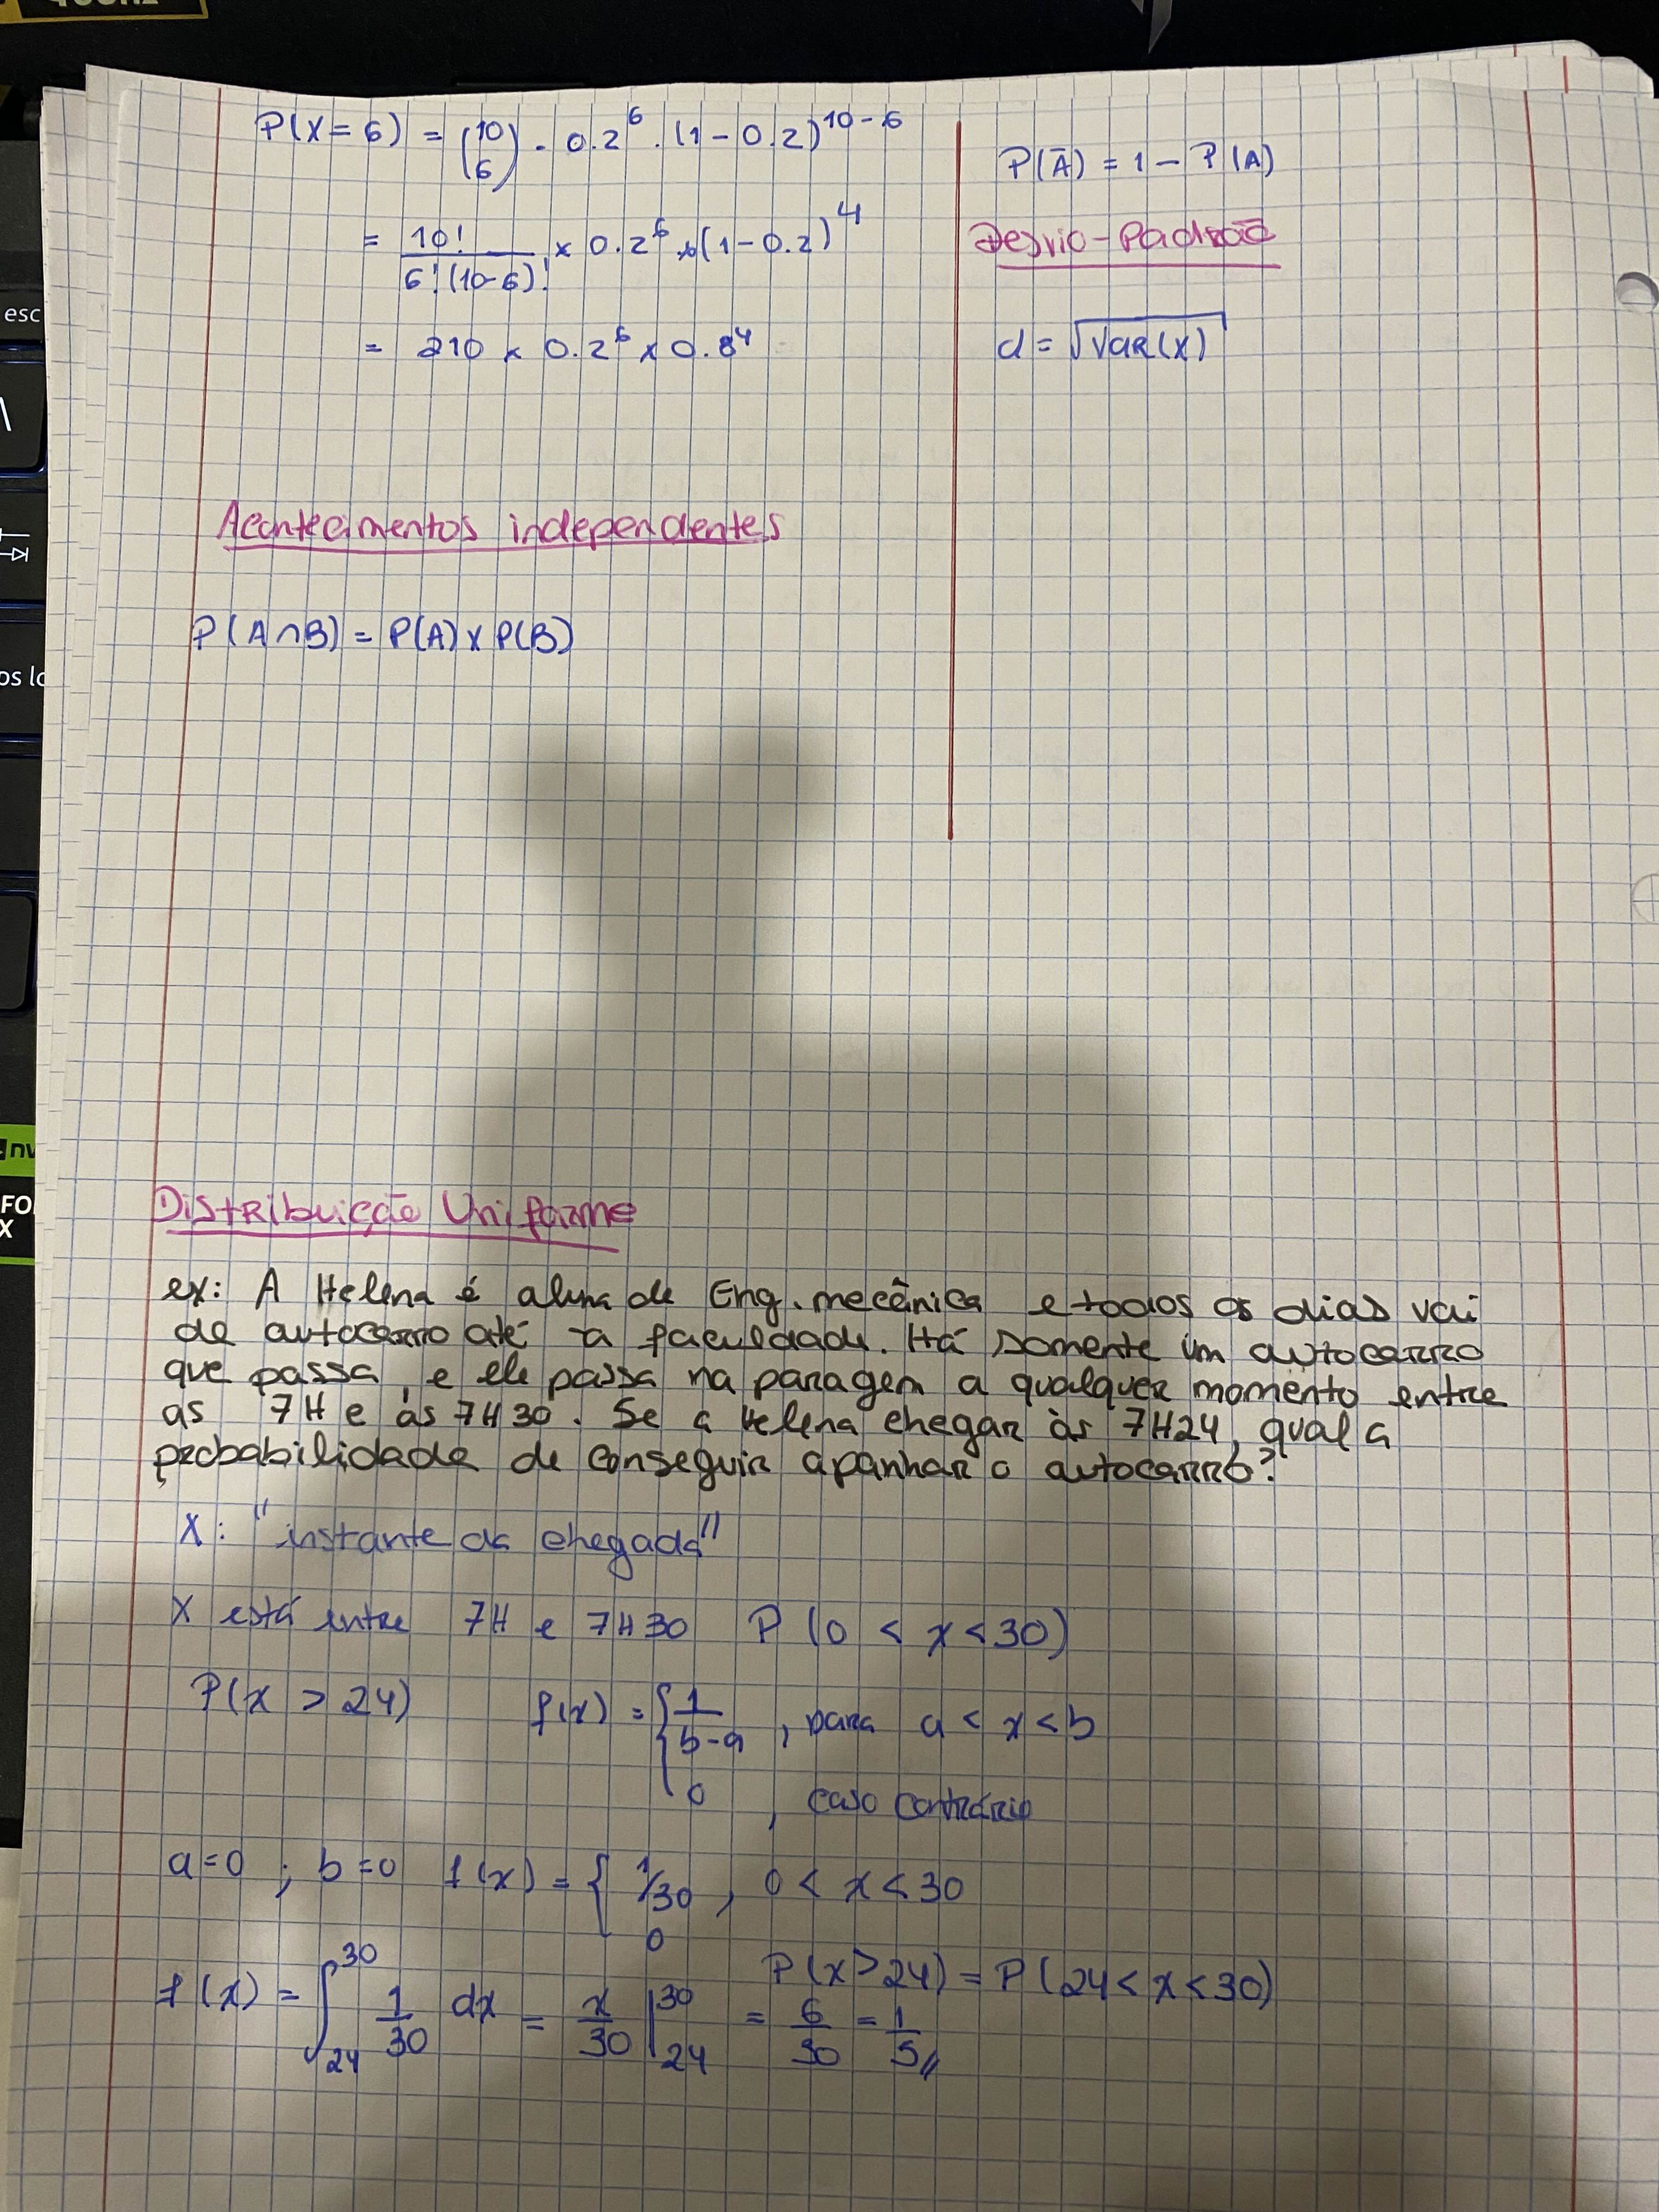 P(X=6) = (10 6) . 0.2^6 . (1-0.2)^10-6
= 10!/6!(10-6)! × 0.2^6 × (1-0.2)^4
= 210 × 0.2^6 × 0.8^4
P(Ā) = 1 - P(A)
Desvio-Padrão
d = √Var(X)
Acontecimentos independentes
P(A∩B) = P(A) x P(B)
Distribuição Uniforme
ex: A Helena é aluna de Eng. mecânica e todos os dias vai
de autocarro até à faculdade. Há somente um autocarro
que passa, e ele passa na paragem a qualquer momento entre
as 7H e às 7H30. Se a Helena chegar às 7H24, qual a
probabilidade de conseguir apanhar o autocarro?
X: "instante da chegada"
X está entre 7H e 7H30 P(0 < x < 30)
P(x > 24) f(x) = { 1/b-a , para a < x < b
0 , caso contrário
a=0 ; b=0 f(x) = { 1/30 , 0 < x < 30
0
P(x>24) = P(24 < x < 30)
f(x) = ∫_24^30 1/30 dx = x/30 |_24^30 = 6/30 = 1/5 //
esc